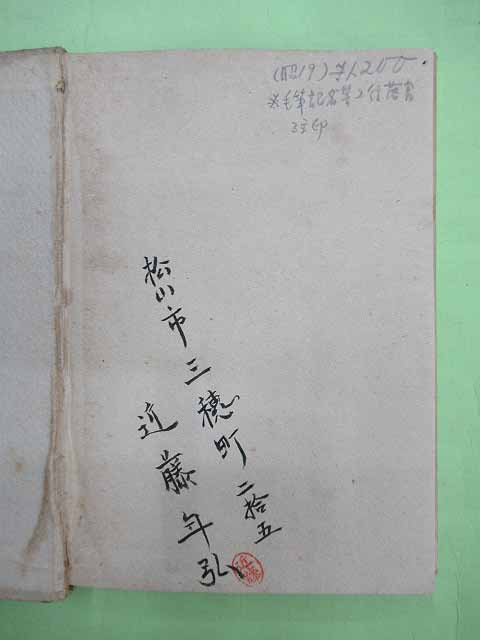 (昭19) ¥1,200
※毛筆記名等2行落書
3ヶ印
松山市三穂町二拾五
近藤年弘
近藤